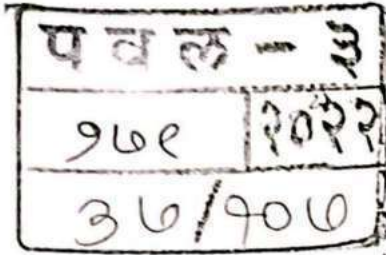 प व ल - ३
१७९ २०२२
३७/१०७